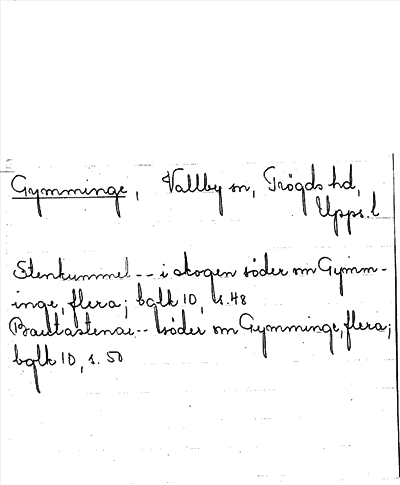 Gymminge, Vallby sn, Trögds hd,
Upps. l
Stenkummel -- i skogen söder om Gymm-
inge, flera; bqlk 10, s. 48
Bautastenar -- söder om Gymminge, flera;
bqlk 10, s. 50